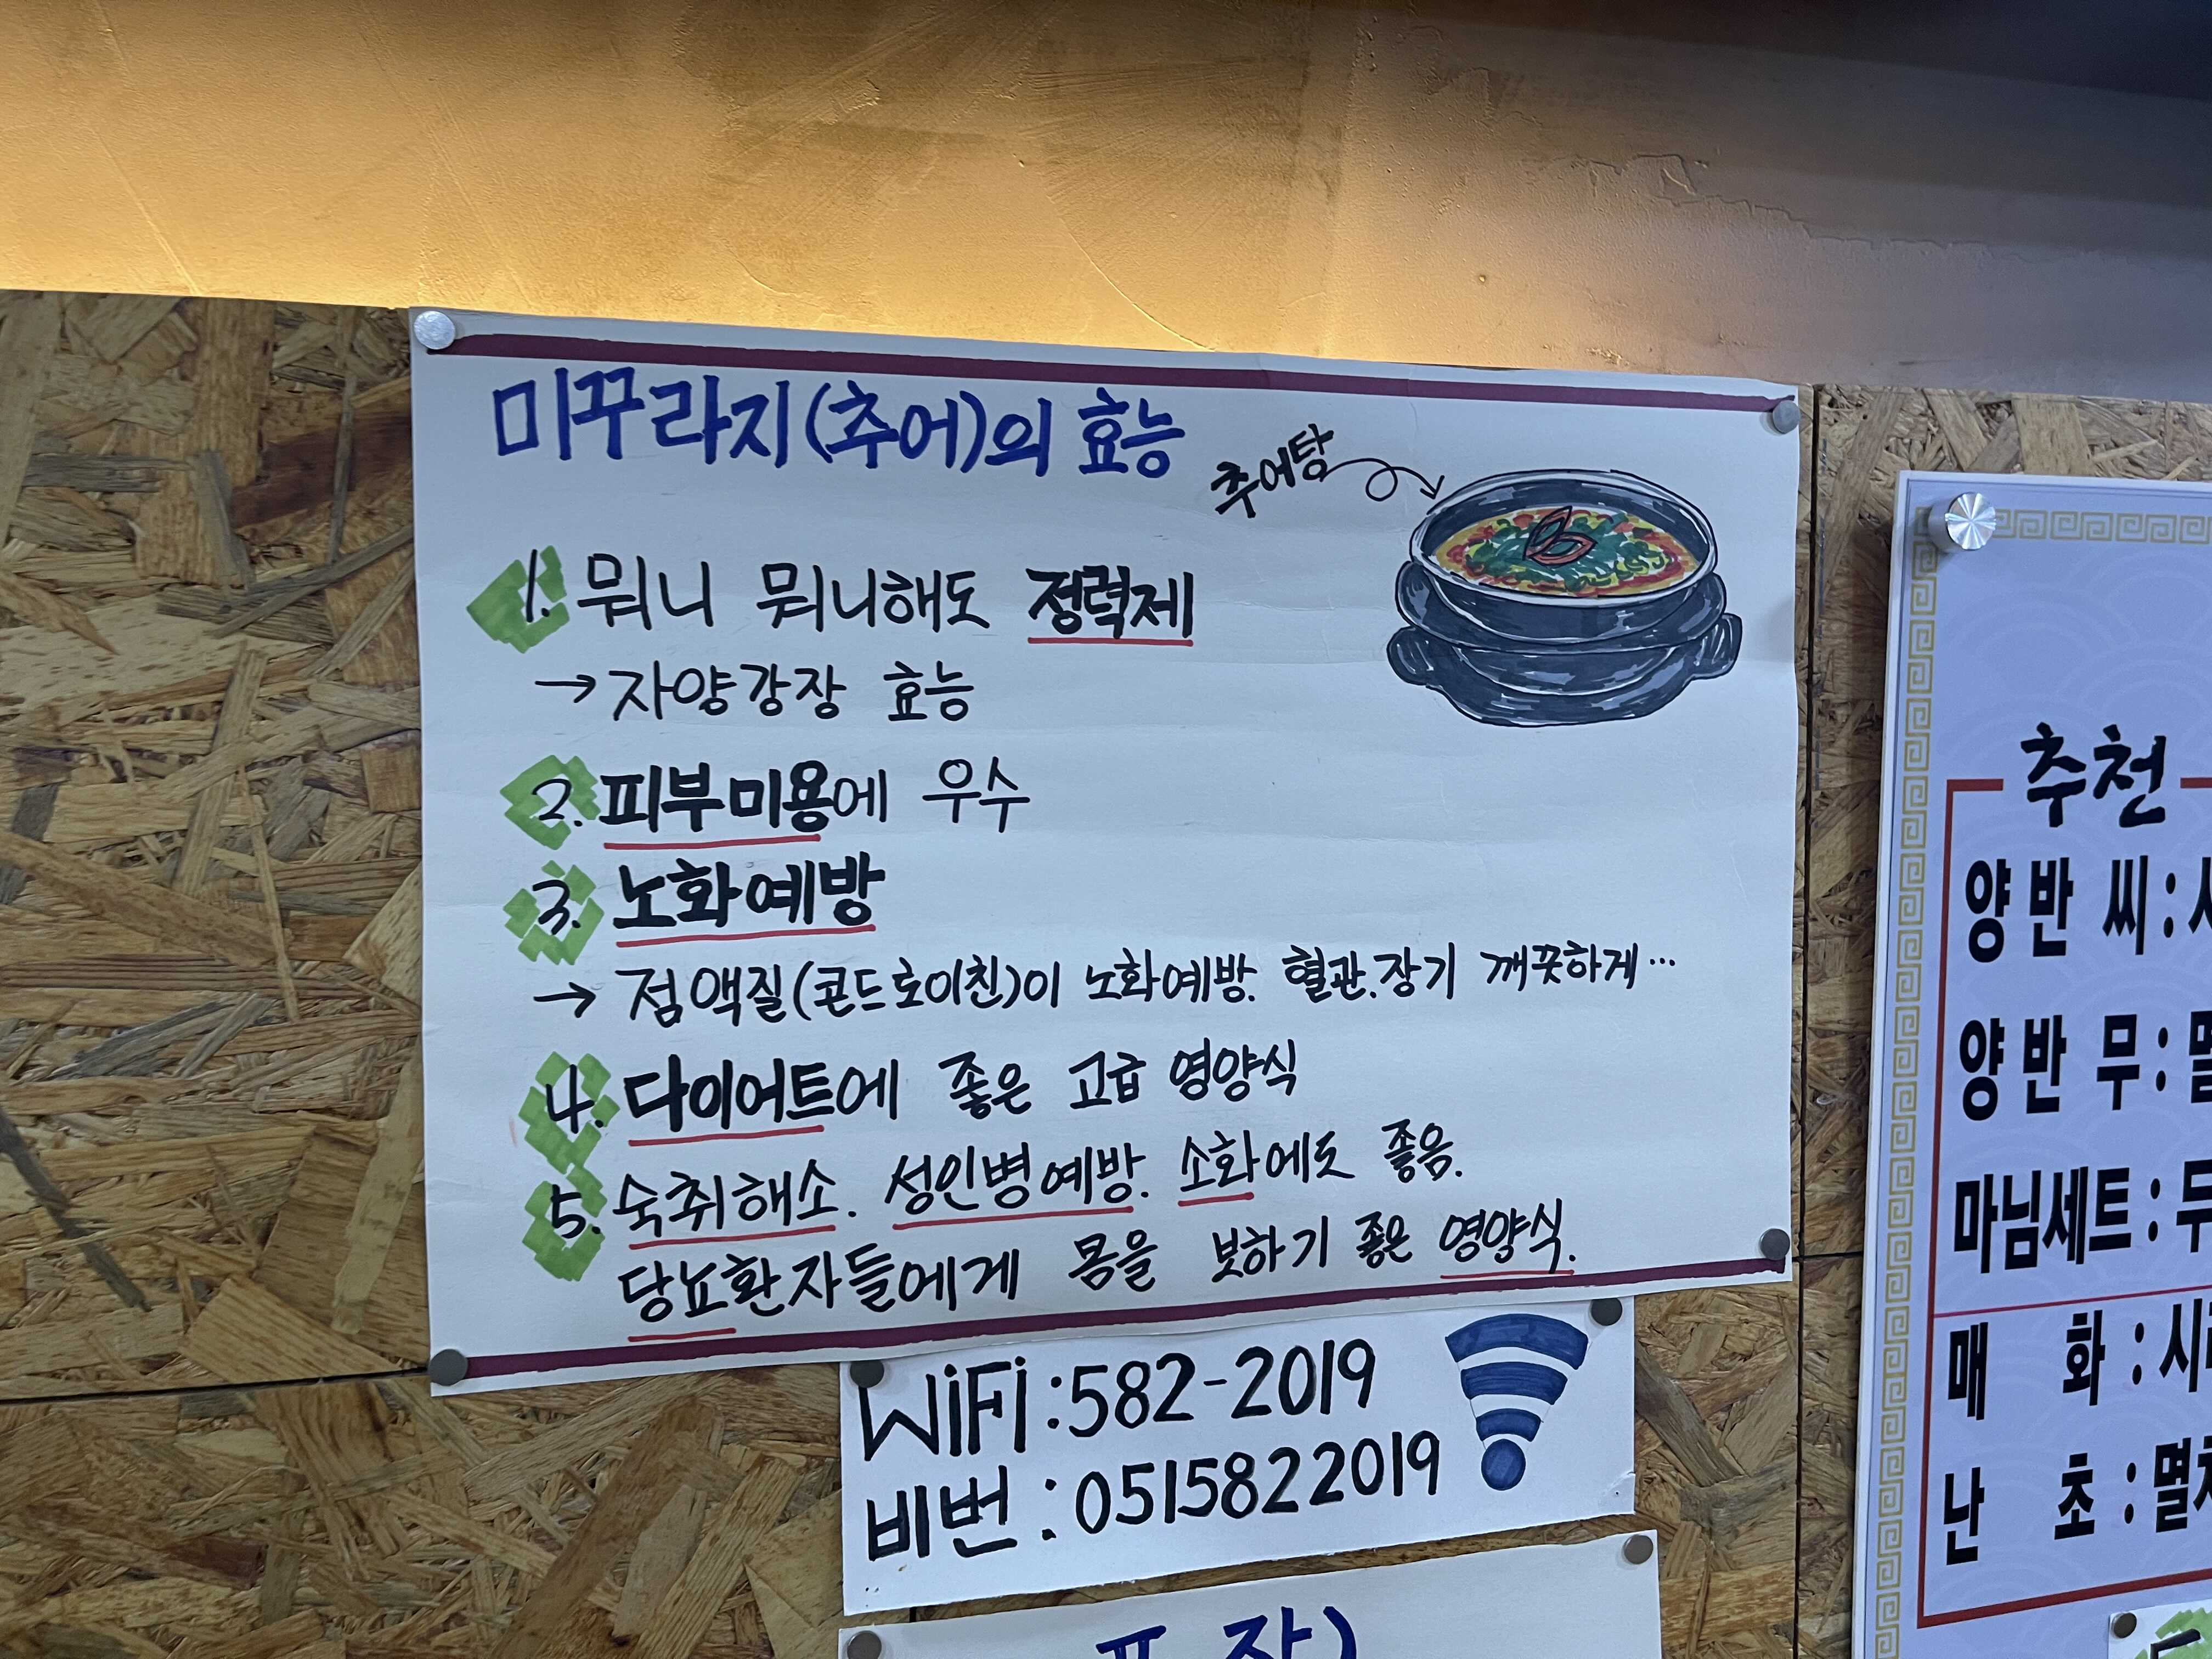 미꾸라지(추어)의 효능
추어탕
1. 뭐니 뭐니해도 정력제
→ 자양강장 효능
2. 피부미용에 우수
3. 노화예방
→ 점액질(콘드로이친)이 노화예방. 혈관.장기 깨끗하게…
4. 다이어트에 좋은 고급 영양식
5. 숙취해소. 성인병예방. 소화에도 좋음.
당뇨환자들에게 몸을 보하기 좋은 영양식.
WiFi : 582-2019
비번 : 0515822019
추천
양반 씨 :
양반 무 :
마님세트 :
매 화 :
난 초 :